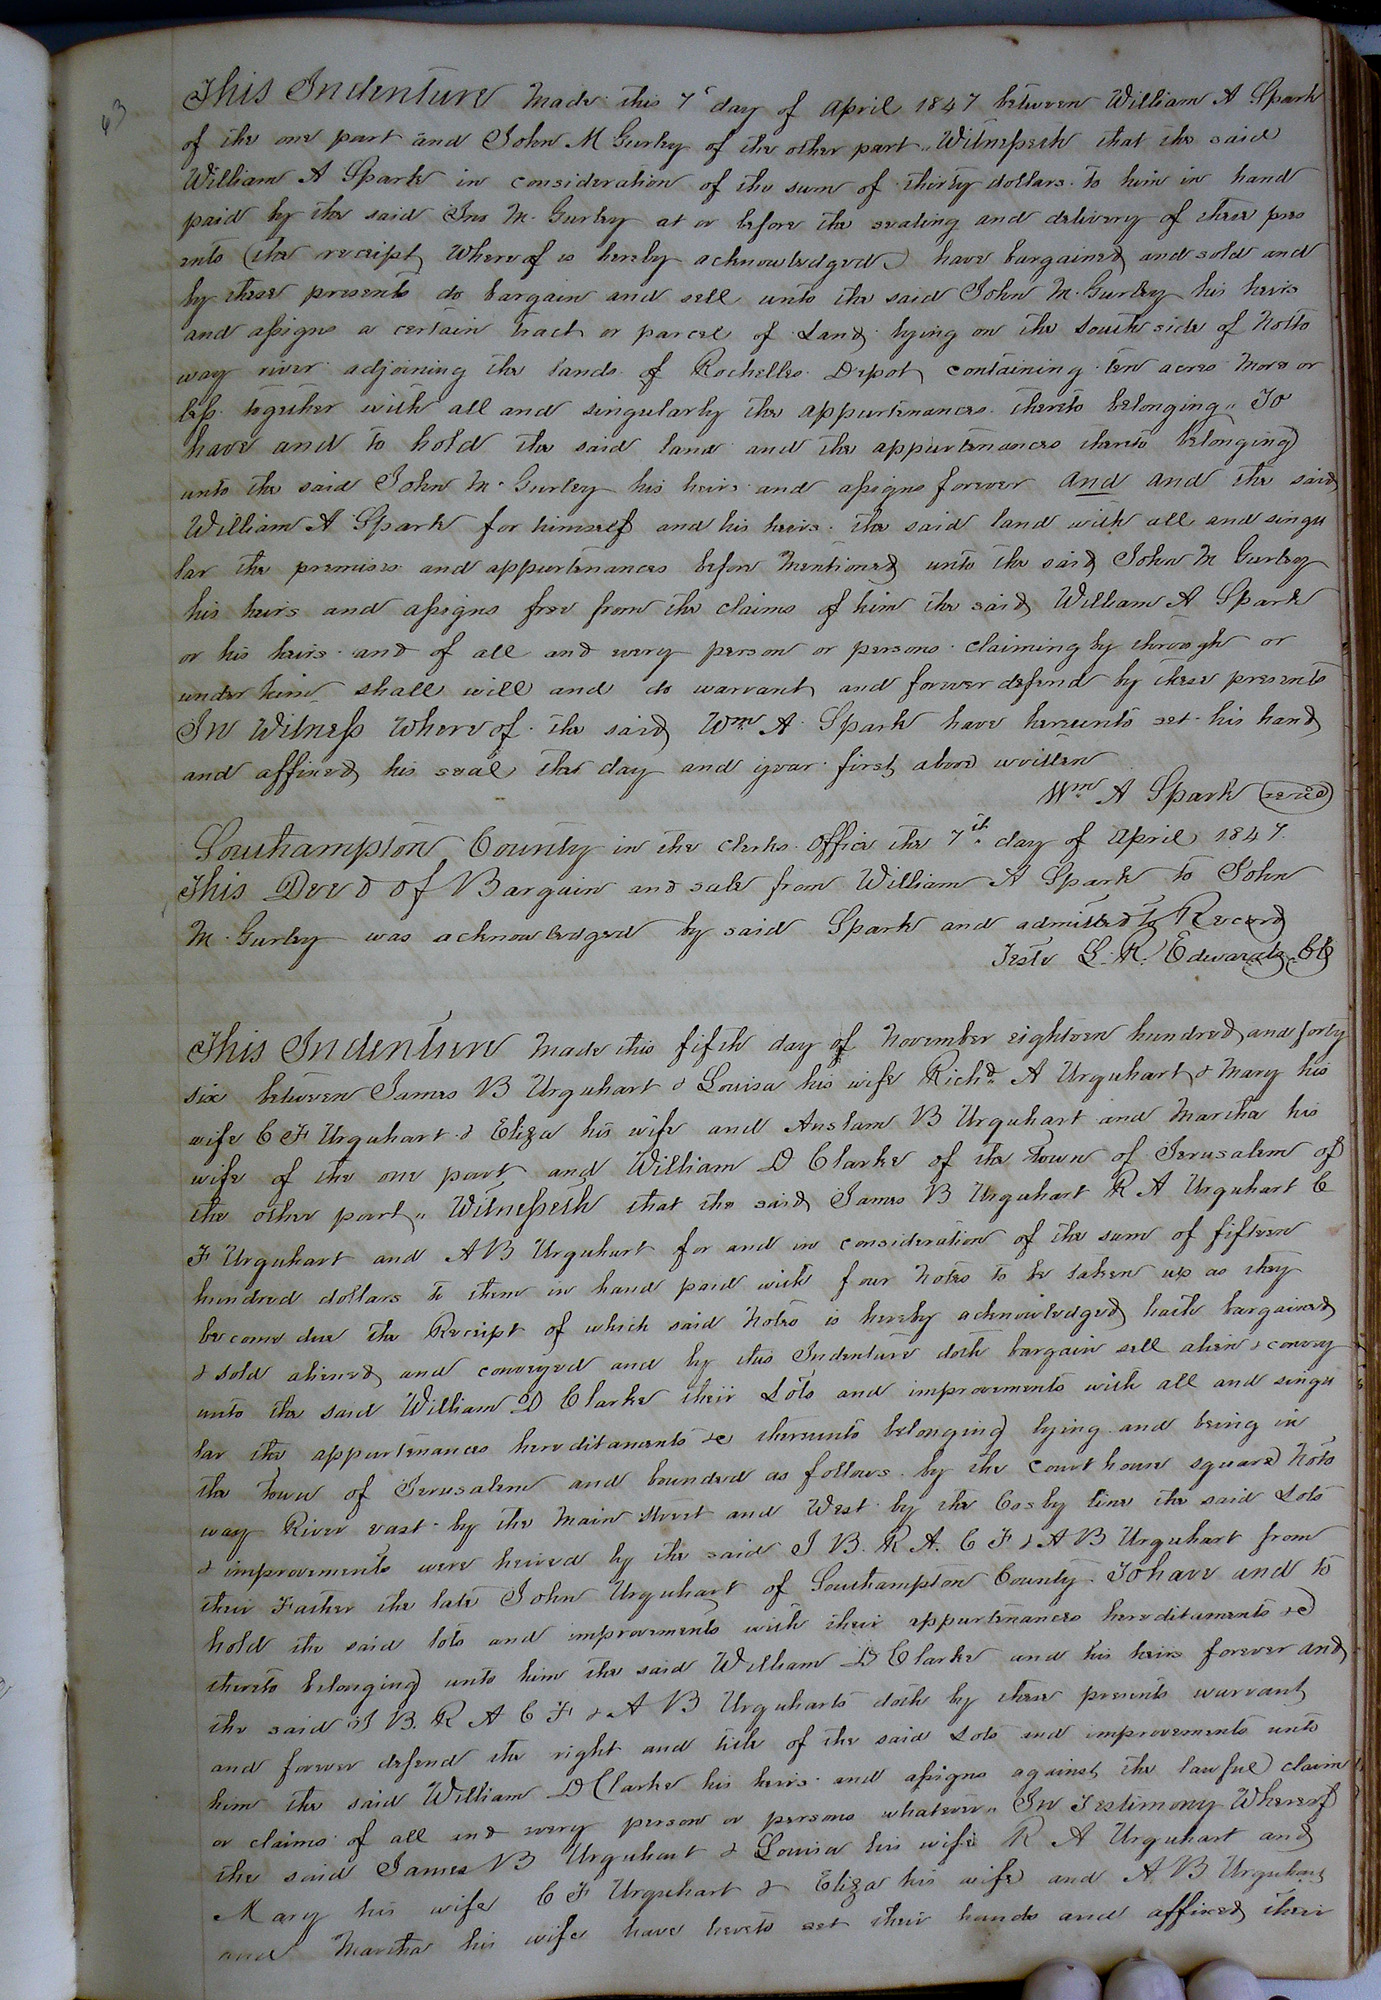 63
This Indenture Made this 7th day of April 1847 between William A Spark
of the one part and John M Gurley of the other part, Witnesseth that the said
William A Spark in consideration of the sum of thirty dollars to him in hand
paid by the said Jno M. Gurley at or before the sealing and delivery of these pres
ents (the receipt Whereof is hereby acknowledged) have bargained and sold and
by these presents do bargain and sell unto the said John M. Gurley his heirs
and assigns a certain tract or parcel of Land lying on the South side of Notto
way river adjoining the lands of Rochelles Depot containing ten acres More or
less together with all and singularly the appurtenances thereto belonging" To
have and to hold the said land and the appurtenances thereto belonging
unto the said John M. Gurley his heirs and assigns forever and and the said
William A Spark for himself and his heirs the said land with all and singu
lar the premises and appurtenances before Mentioned unto the said John M Gurley
his heirs and assigns free from the claims of him the said William A Spark
or his heirs and of all and every person or persons claiming by through or
under him shall will and do warrant and forever defend by these presents
In Witness Whereof the said Wm A Spark have hereunto set his hand
and affixed his seal the day and year first above written
Wm A Spark (seal)
Southampton County in the clerks Office the 7th day of April 1847.
This Deed of Bargain and sale from William A Spark to John
M. Gurley was acknowledged by said Spark and admitted to Record
Teste L. R. Edwards Clk
This Indenture Made this fifth day of November eighteen hundred and forty
six between James B Urquhart & Louisa his wife Richd A Urquhart & Mary his
wife C F Urquhart & Eliza his wife and Anslam B Urquhart and Martha his
wife of the one part and William D Clarke of the Town of Jerusalem of
the other part" Witnesseth that the said James B Urquhart R A Urquhart C
F Urquhart and A B Urquhart for and in consideration of the sum of fifteen
hundred dollars to them in hand paid with four Notes to be taken up as they
become due the Receipt of which said Notes is hereby acknowledged hath bargained
& sold aliened and conveyed and by this Indenture doth bargain sell alien & convey
unto the said William D Clarke their Lots and improvements with all and singu
lar the appurtenances hereditaments &c thereunto belonging lying and being in
the Town of Jerusalem and bounded as follows by the court house square Notto
way River east by the Main Street and West by the Cosby line the said Lots
& improvements were heired by the said J B. R A. C F & A B Urquhart from
their Father the late John Urquhart of Southampton County. To have and to
hold the said lots and improvements with their appurtenances hereditaments &c
thereto belonging unto him the said William D Clarke and his heirs forever and
the said J B. R A C F & A B Urquharts doth by these presents warrant
and forever defend the right and title of the said Lots and improvements unto
him the said William D Clarke his heirs and assigns against the lawful claim
or claims of all and every person or persons whatever" In Testimony Whereof
the said James B Urquhart & Louisa his wife R A Urquhart and
Mary his wife C F Urquhart & Eliza his wife and A B Urquhart
and Martha his wife have hereto set their hands and affixed their